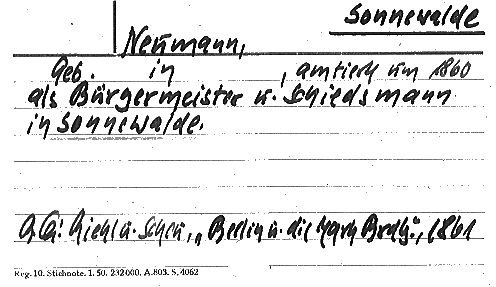 Sonnewalde
Neumann,
Geb. in , amtiert um 1860
als Bürgermeister u. Schiedsmann
in Sonnewalde.
Qu: Riehl u. Scheu, „Berlin u. die Mark Brdbg.", 1861
Reg. 10. Stichnote. 1. 50. 232000. A.803. S. 4062